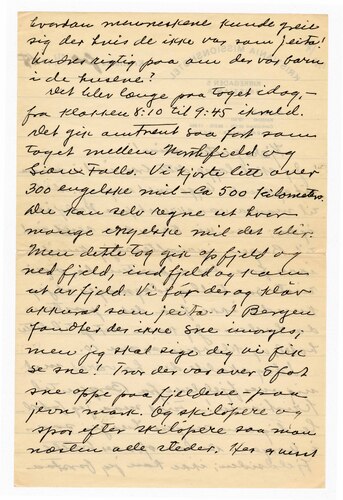 hvordan menneskene kunde greie
sig der hvis de ikke var som jeita!
Undres rigtig paa om der var barn
i de husene?
Det blev længe paa toget idag,—
fra klokken 8:10 til 9:45 ikveld.
Det gik omtrent saa fort som
toget mellem Northfield og
Sioux Falls. Vi kjørte litt over
300 engelske mil — Ca 500 kilometer.
Du kan selv regne ut hvor
mange engelske mil det blir.
Men dette tog gik op fjeld og
ned fjeld, ind fjeld og kom
ut av fjeld. Vi for der og kløv
akkurat som jeita. I Bergen
fandtes der ikke sne imorges,
men jeg skal sige dig vi fik
se sne! Tror der var over 5 fot
sne oppe paa fjeldene — paa
jevn mark. Og skiløpere og
spor efter skiløpere saa man
næsten alle steder. Her